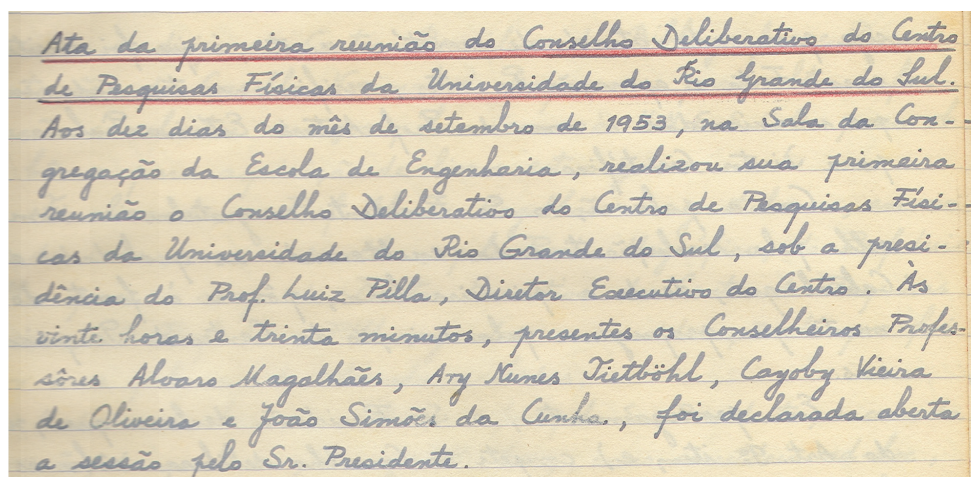 Ata da primeira reunião do Conselho Deliberativo do Centro
de Pesquisas Físicas da Universidade do Rio Grande do Sul.
Aos dez dias do mês de setembro de 1953, na Sala da Con-
gregação da Escola de Engenharia, realizou sua primeira
reunião o Conselho Deliberativo do Centro de Pesquisas Físi-
cas da Universidade do Rio Grande do Sul, sob a presi-
dência do Prof. Luiz Pilla, Diretor Executivo do Centro. Às
vinte horas e trinta minutos, presentes os Conselheiros Profes-
sôres Alvaro Magalhães, Ary Nunes Tietböhl, Cayoby Vieira
de Oliveira e João Simões da Cunha., foi declarada aberta
a sessão pelo Sr. Presidente.